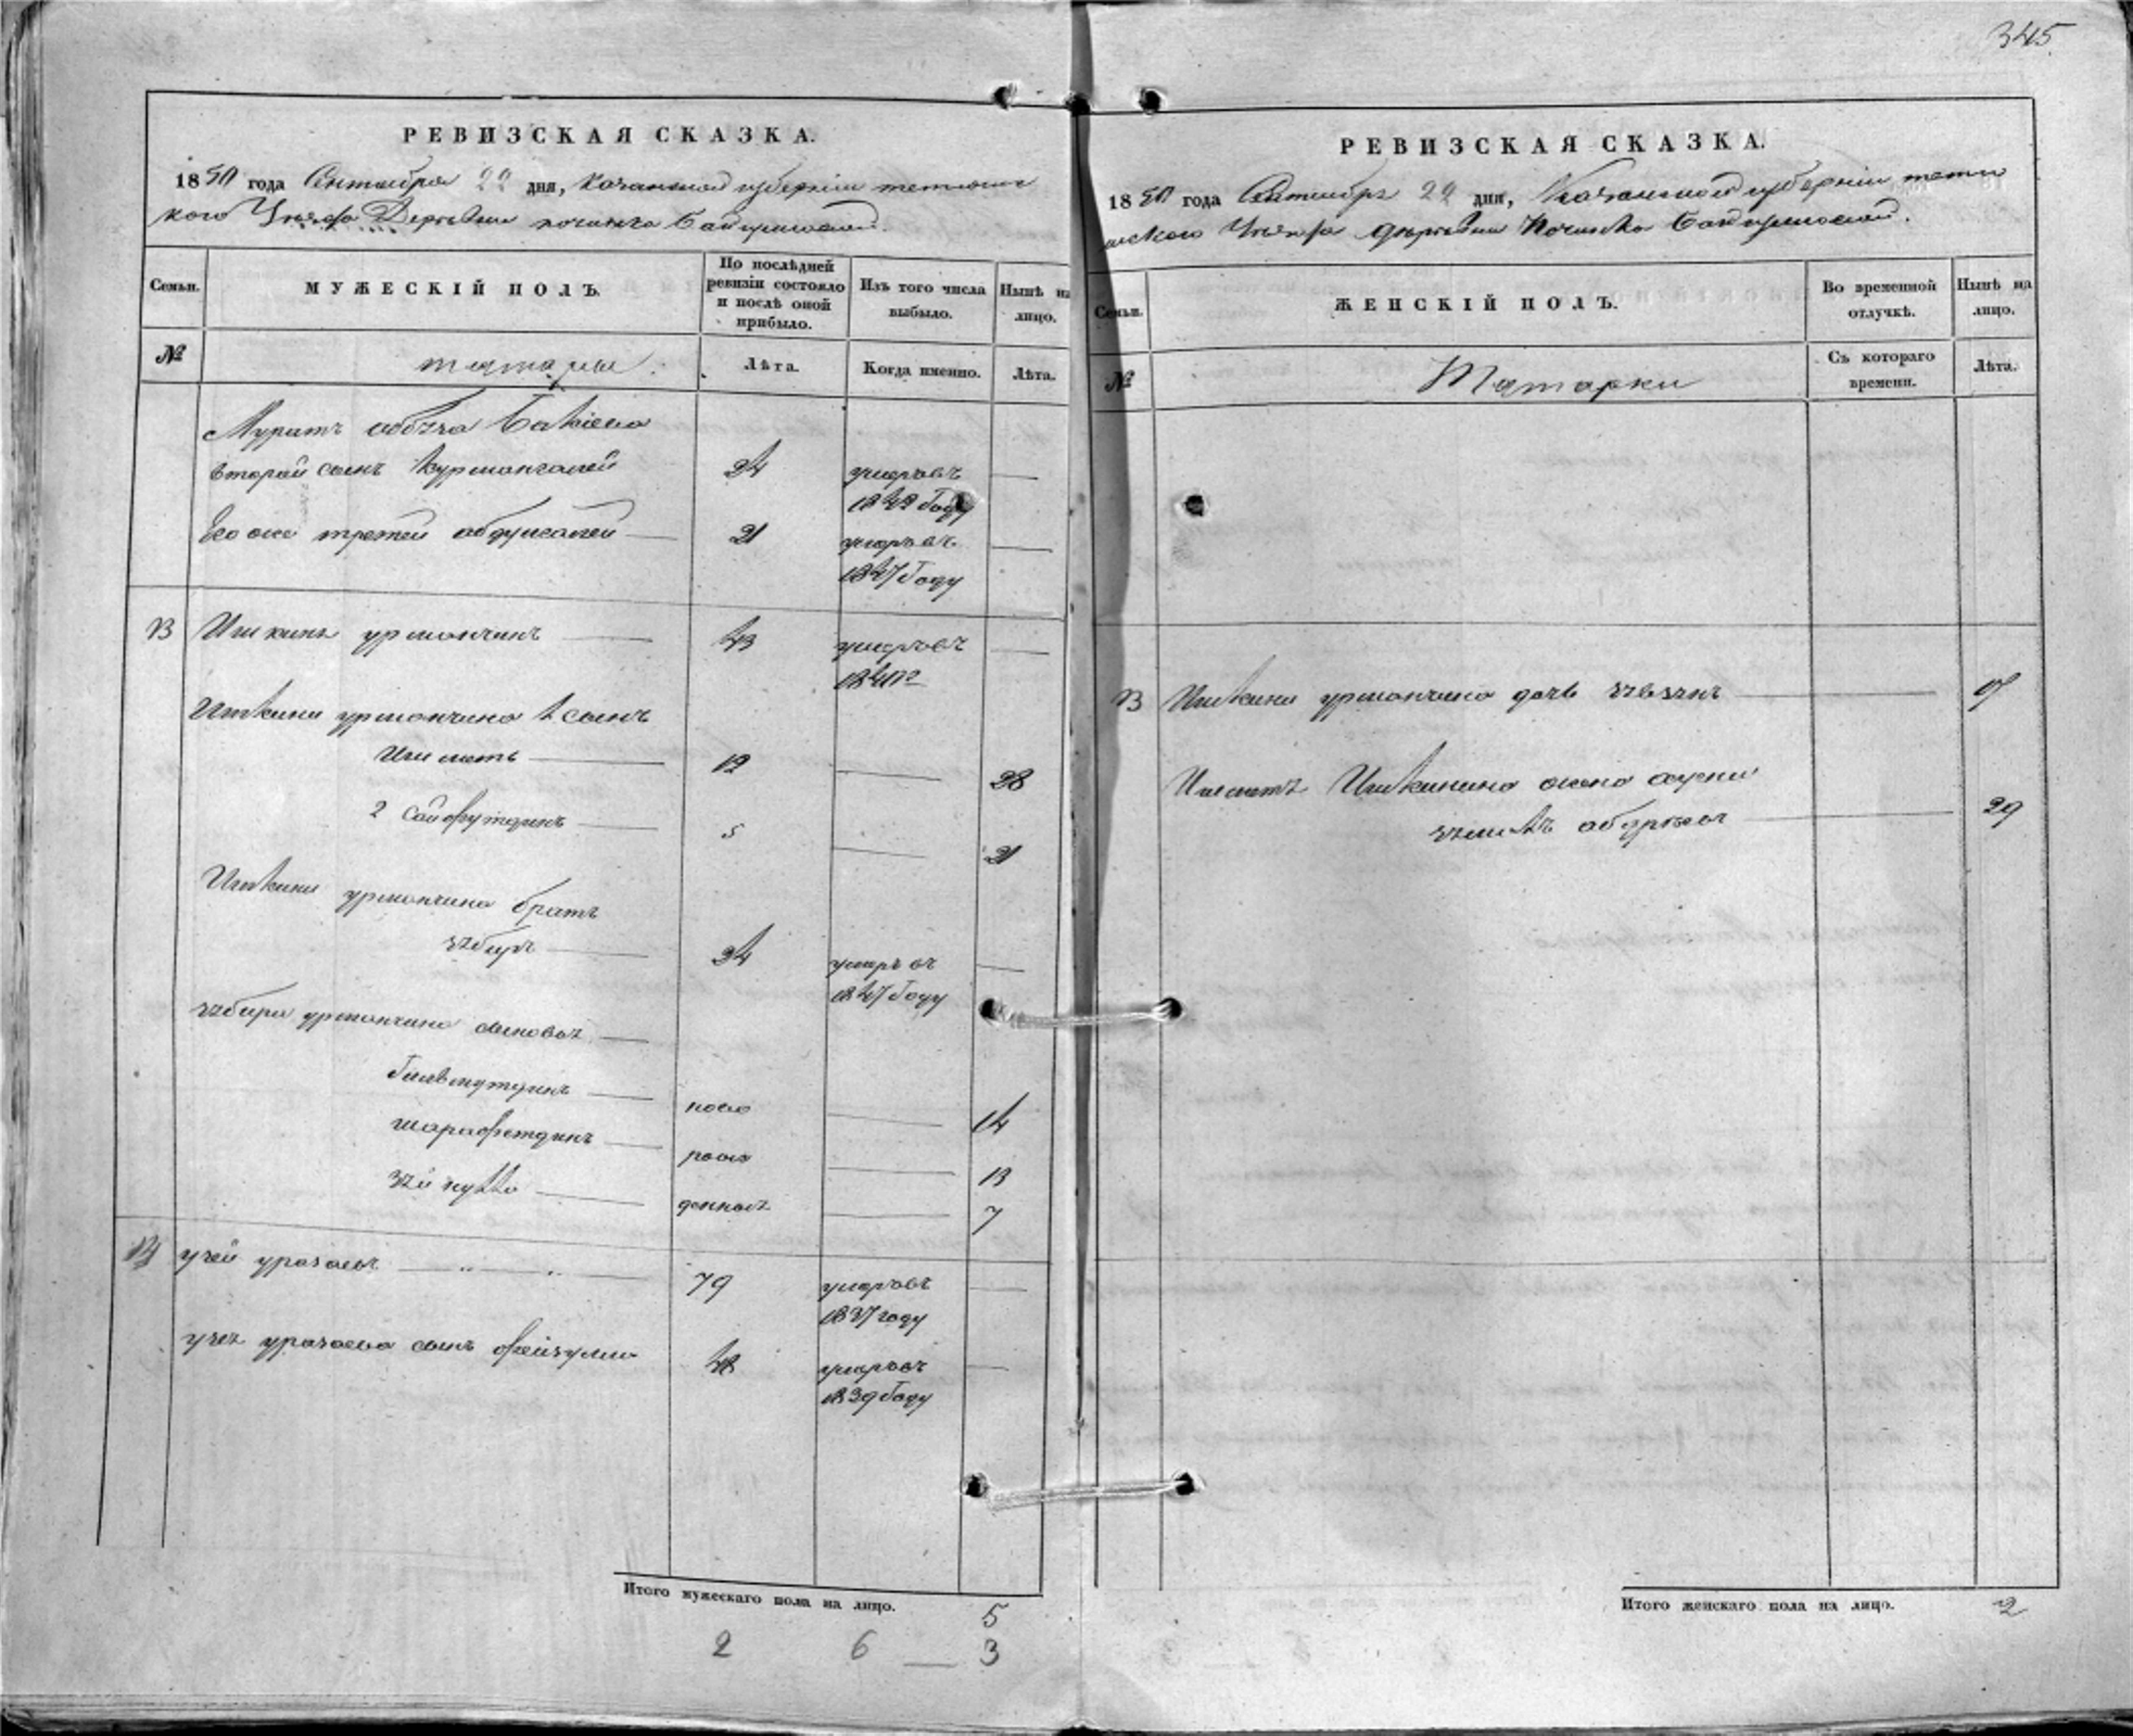 345
РЕВИЗСКАЯ СКАЗКА.
1850 года Сентября 22 дня, Казанской губернiи тетюшс
кого Уѣзда Деревни починка
Семьи.
МУЖЕСКIЙ ПОЛЪ.
По послѣдней ревизiи состояло и послѣ оной прибыло.
Изъ того числа выбыло.
Нынѣ на лицо.
№
татары.
Лѣта.
Когда именно.
Лѣта.
Муратъ
второй сынъ Курмангалей 24 умеръ въ
1842 Году
Его же третей абдулгалей 21 умеръ въ
1847 Году
13 Ишкинъ урманчинъ 43 умеръ въ
1840 г
Ишкини урманчина 1 сынъ
Ишметь 12 28
2 Сайфутдинъ 5 21
Ишкини урманчина братъ
34 умеръ въ
1847 Году
урманчина сыновья
ново 14
шарафетдинъ рож 13
денные 7
14 учей уразаевъ 79 умеръ въ
1837 году
уразаева сынъ фейзулла 48 умеръ въ
1839 Году
Итого мужескаго пола на лицо. 5
2 6 3
РЕВИЗСКАЯ СКАЗКА.
1850 года Сентября 22 дня, Казанской губернiи тетю
шского Уѣзда деревни Починка
Семьи.
ЖЕНСКIЙ ПОЛЪ.
Во временной отлучкѣ.
Нынѣ на лицо.
№
Татарки
Съ котораго времени.
Лѣта.
13 Ишкини урманчина дочь 17
Ишметя Ишкинина жена
29
Итого женскаго пола на лицо. 2